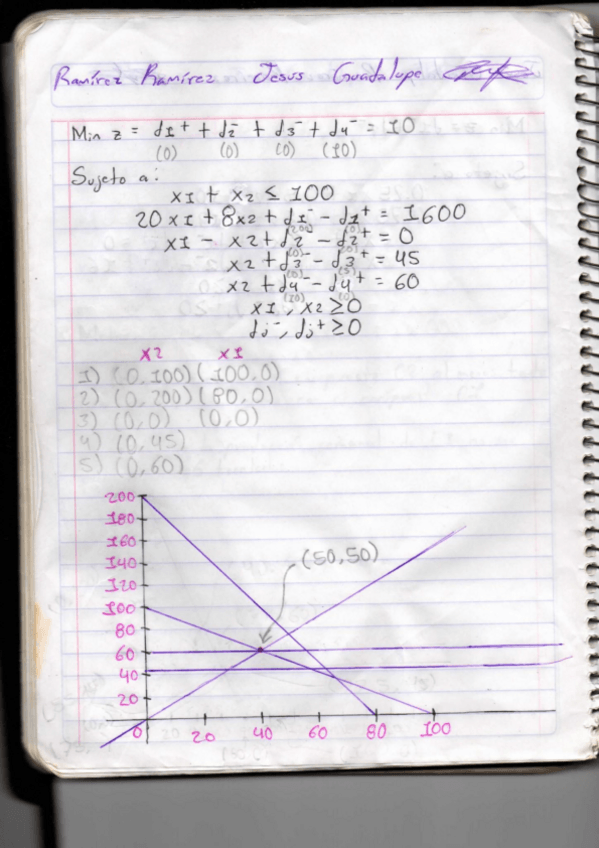 Ramírez Ramírez Jesus Guadalupe
Min z = d1⁺ + d2⁻ + d3⁻ + d4⁻ = 10
(0) (0) (0) (10)
Sujeto a:
x1 + x2 ≤ 100
20x1 + 8x2 + d1⁻ - d1⁺ = 1600
(200) (0)
x1 - x2 + d2⁻ - d2⁺ = 0
(0)
x2 + d3⁻ - d3⁺ = 45
(0) (5)
x2 + d4⁻ - d4⁺ = 60
(10) (0)
x1, x2 ≥ 0
dj⁻, dj⁺ ≥ 0
x2 x1
1) (0,100) (100,0)
2) (0,200) (80,0)
3) (0,0) (0,0)
4) (0,45)
5) (0,60)
200
180
160
140
120
100
80
60
40
20
(50,50)
0 20 40 60 80 100